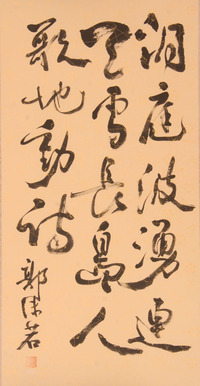 洞庭波涌連
天雪長島人
歌地動詩
郭沫若